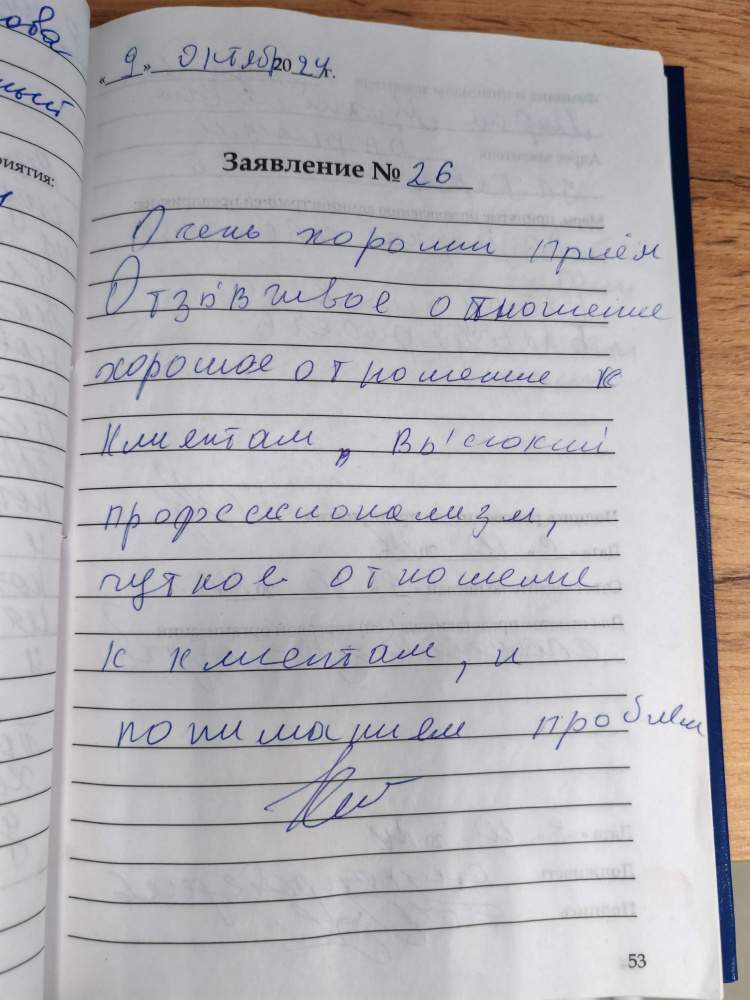 ова
ный
риятия:
« 9 » октябр 2024 г.
Заявление № 26
Очень хороший приём
Отзывчивое отношение
хорошое отношение к
клиентам, высокий
професионализм,
чуткое отношение
к клиентам, и
пониманием проблем
53